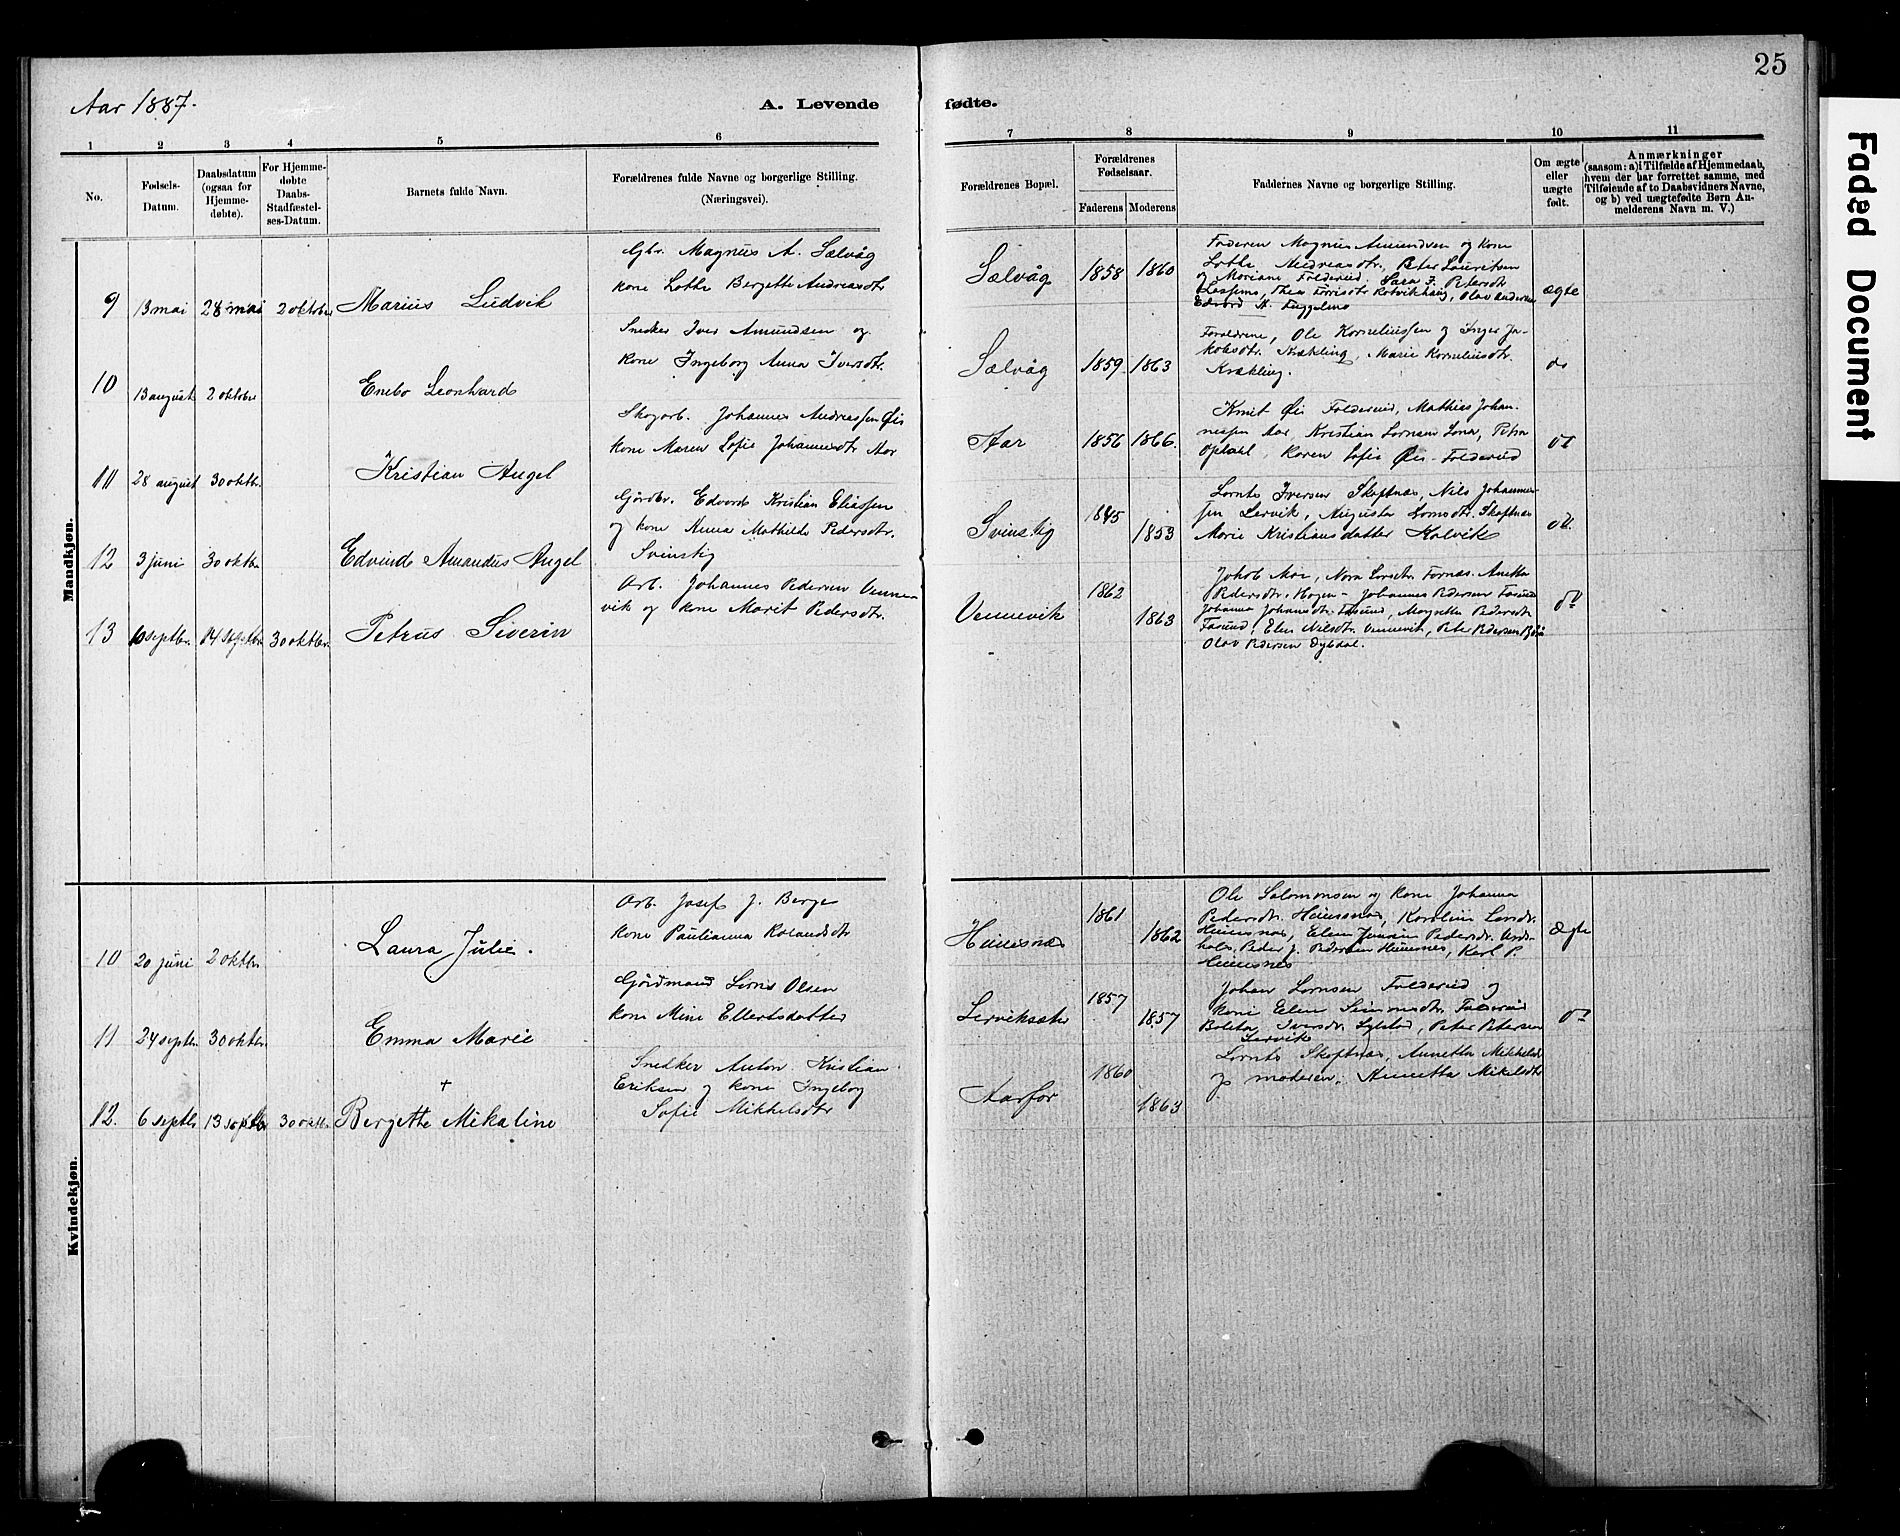 25
Aar 1887.
A. Levende fødte.
1 2 3 4 5 6 7 8 9 10 11
No.
Fødsels-Datum.
Daabsdatum (ogsaa for Hjemme-døbte).
For Hjemme-døbte Daabs-Stadfæstel-ses-Datum.
Barnets fulde Navn.
Forældrenes fulde Navne og borgerlige Stilling.
(Næringsvei).
Forældrenes Bopæl.
Forældrenes Fødselsaar.
Faderens Moderens
Faddernes Navne og borgerlige Stilling.
Om ægte eller uægte født.
Anmærkninger
(saasom: a) i Tilfælde af Hjemmedaab,
hvem der har forrettet samme, med
Tilføiende af to Daabsvidners Navne,
og b) ved uægtefødte Børn An-
melderens Navn m. V.)
Mandkjøn.
9 13 mai 28 mai 2 oktober Marius Ludvik
Gbr. Magnus A. Sælvåg
kone Lotte Bergette Andreasdtr
Sælvåg 1858 1860
Faderen Magnus Amundsen og kone
Lotte Andreasdtr. Peter Lauritsen
ægte
10 13 august 2 oktober Enebo Leonhard
Snedker Iver Amundsen og
kone Ingeborg Anna Iversdtr.
Sælvåg 1859 1863
Forældrene, Ole Korneliussen og Inger Ja-
kobsdtr. Krækling, Marie Korneliusdtr.
Krækling.
do
11 28 august 30 oktbr. Kristian Angel
Skogarb. Johannes Andreassen Øis
kone Maren Sofie Johannesdtr Aar
Aar 1856 1866.
Knut Øis Foldereid, Mathies Johan-
nessen Aar Kristian Lornsen Lona, Petra
Opdahl, Karen Sofie Øis Foldereid
do
12 3 juni 30 oktbr Edvind Amandus Angel
Gårdbr. Edvard Kristian Eliassen
og kone Anna Mathilde Pedersdtr.
Svinstig
Svinstig 1845 1853
Lornts Iversen Skoftnæs, Nils Johannes-
sen Lervik, Augusta Lornsdtr. Skoftnæs
Marie Kristiansdatter Kalvik
do.
13 10 septbr. 14 septbr 30 oktbr. Petrus Siverin
Arb. Johannes Pedersen Venne-
vik og kone Marit Pedersdtr.
Vennevik 1862 1863
Pedersdtr. Hagen - Johannes Pedersen Fasund
Johanna Johansdtr. Fasund, Margrethe Pedersdtr
Fasund, Elen Nilsdtr. Vennevik, Peter Pedersen
Olav Pedersen Dybdal.
do
Kvindekjøn.
10 20 juni 2 oktbr Laura Julie.
Arb. Josef J. Berge
kone Paulianna Rolandsdtr
Himesnæs 1861 1862
Ole Salomonsen og kone Johanna
Pedersdtr. Himesnæs, Karoline Larsdtr.
Himesnæs, Elen Pedersdtr.
Peder J. Pedersen Himesnes, Karl P.
Himesnes
ægte
11 24 septbr 30 oktbr. Emma Marie
Gårdmand Lorns Olsen
kone Mine Ellertsdatter
Lerviksæter 1857 1857
Johan Lornsen Foldereid og
kone Elen Simonsdtr. Foldereid
Boleta Iversdtr. Sylstad, Peter Petersen
Lervik
do
12. 6 septbr 13 septbr 30 oktbr. + Bergette Mikaline
Snedker Anton Kristian
Eriksen og kone Ingebog
Sofie Mikkelsdtr
Aarfor 1860 1863
Lornts Skoftnæs, Annetta Mikkelsdtr
og moderen. Annetta Mikelsdtr
Faded Document